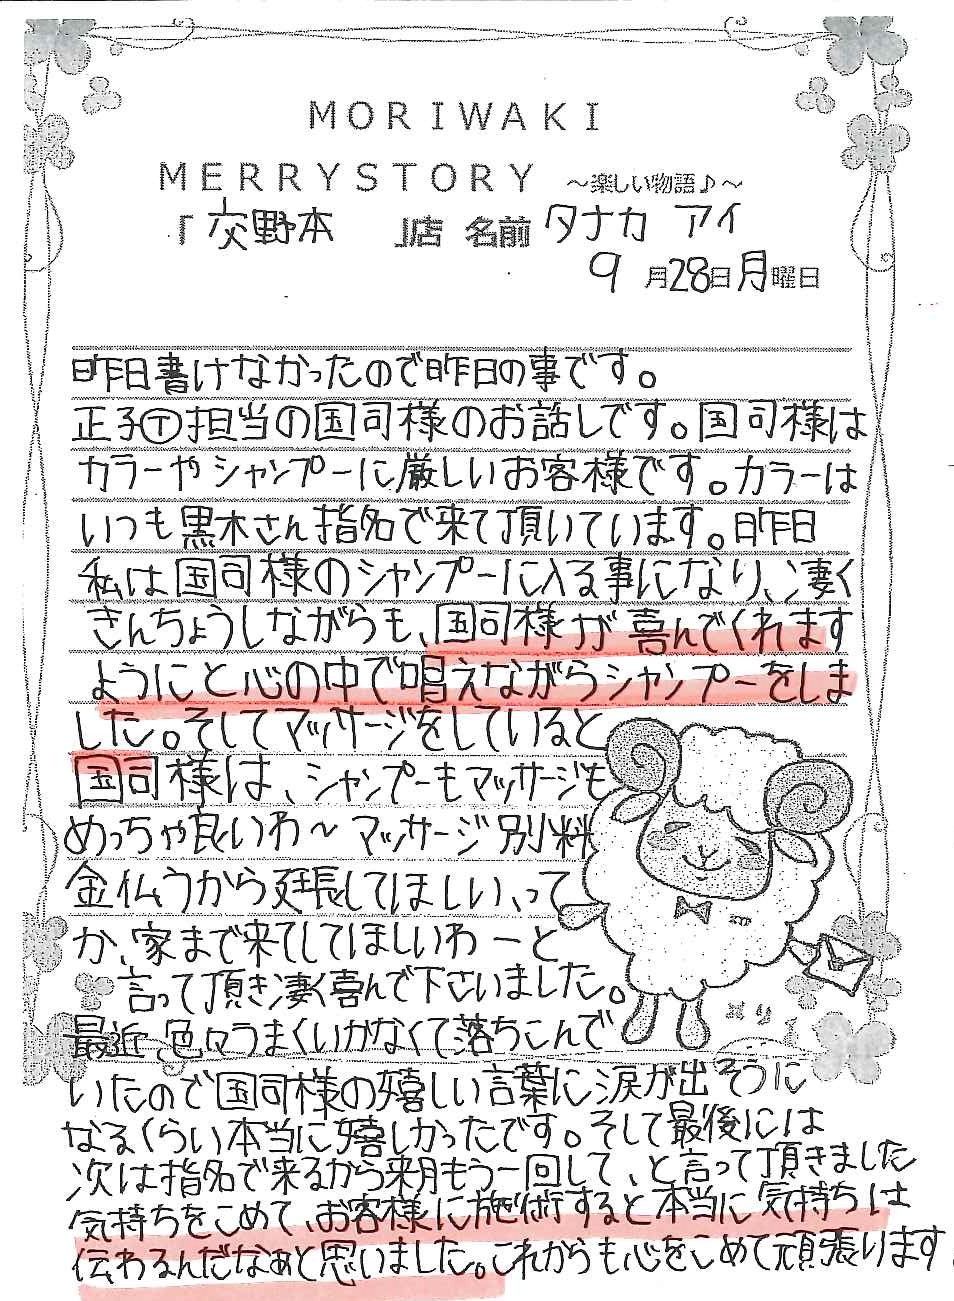 MORIWAKI
MERRYSTORY ～楽しい物語♪～
「交野本 」店 名前 タナカ アイ
9月28日月曜日
昨日書けなかったので昨日の事です。
正子Ⓣ担当の国司様のお話しです。国司様は
カラーやシャンプーに厳しいお客様です。カラーは
いつも黒木さん指名で来て頂いています。昨日
私は国司様のシャンプーに入る事になり、凄く
きんちょうしながらも、国司様が喜んでくれます
ようにと心の中で唱えながらシャンプーをしま
した。そしてマッサージをしていると
国司様は、シャンプーもマッサージも
めっちゃ良いわ～マッサージ別料
金払うから延長してほしい、って
か、家まで来てしてほしいわーと
言って頂き凄く喜んで下さいました。
最近、色々うまくいかなくて落ちこんで
いたので国司様の嬉しい言葉に涙が出そうに
なるくらい本当に嬉しかったです。そして最後には
次は指名で来るから来月もう一回して、と言って頂きました
気持ちをこめて、お客様に施術すると本当に気持ちは
伝わるんだなぁと思いました。これからも心をこめて頑張ります。